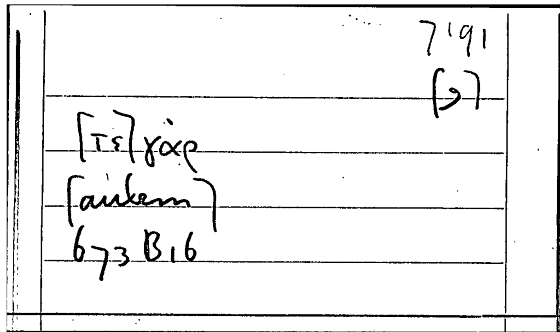 7'91
[τε] γὰρ
[autem]
673 B16